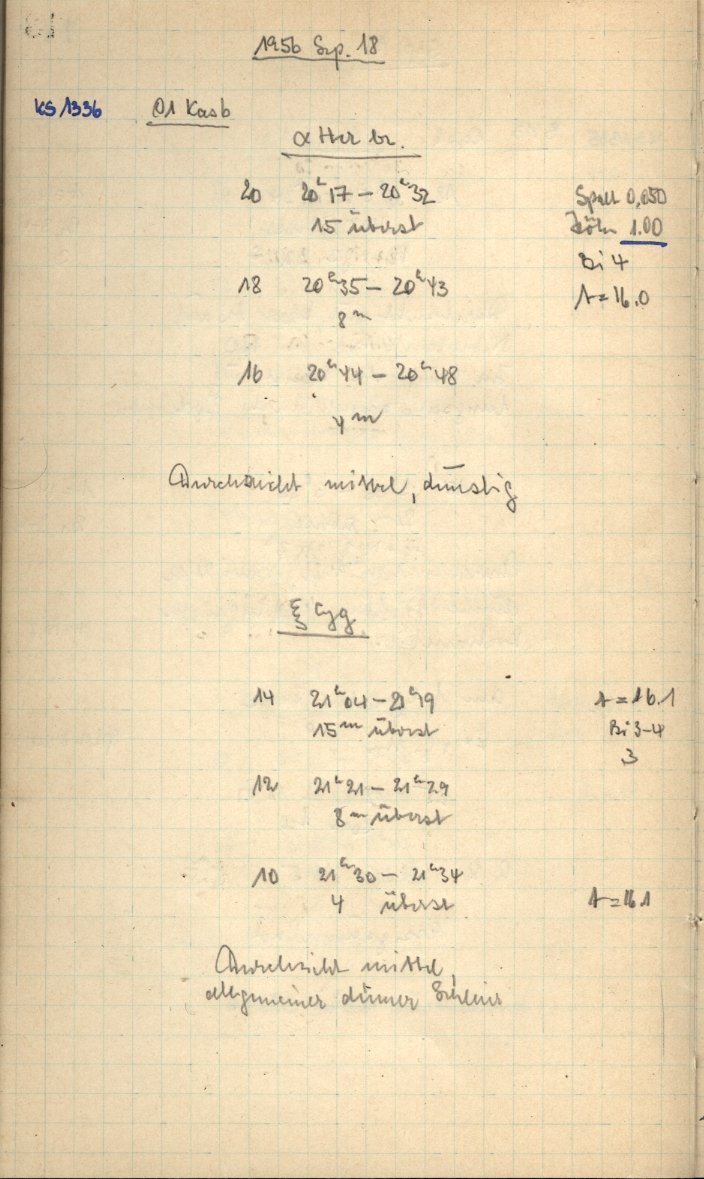 1956 Sep. 18
KS 1336 01 Kasb
α Her br.
20 20ʰ17 – 20ʰ32 Spalt 0,050
15 überst Höhe 1.00
Bi 4
18 20ʰ35 – 20ʰ43 A = 16.0
8ᵐ
16 20ʰ44 – 20ʰ48
4ᵐ
Durchsicht mittel, dunstig
ξ Cyg
14 21ʰ04 – 21ʰ19 A = 16.1
15ᵐ überst Bi 3-4
3
12 21ʰ21 – 21ʰ29
8ᵐ überst
10 21ʰ30 – 21ʰ34
4 überst A = 16.1
Durchsicht mittel,
allgemeiner dünner Schleier